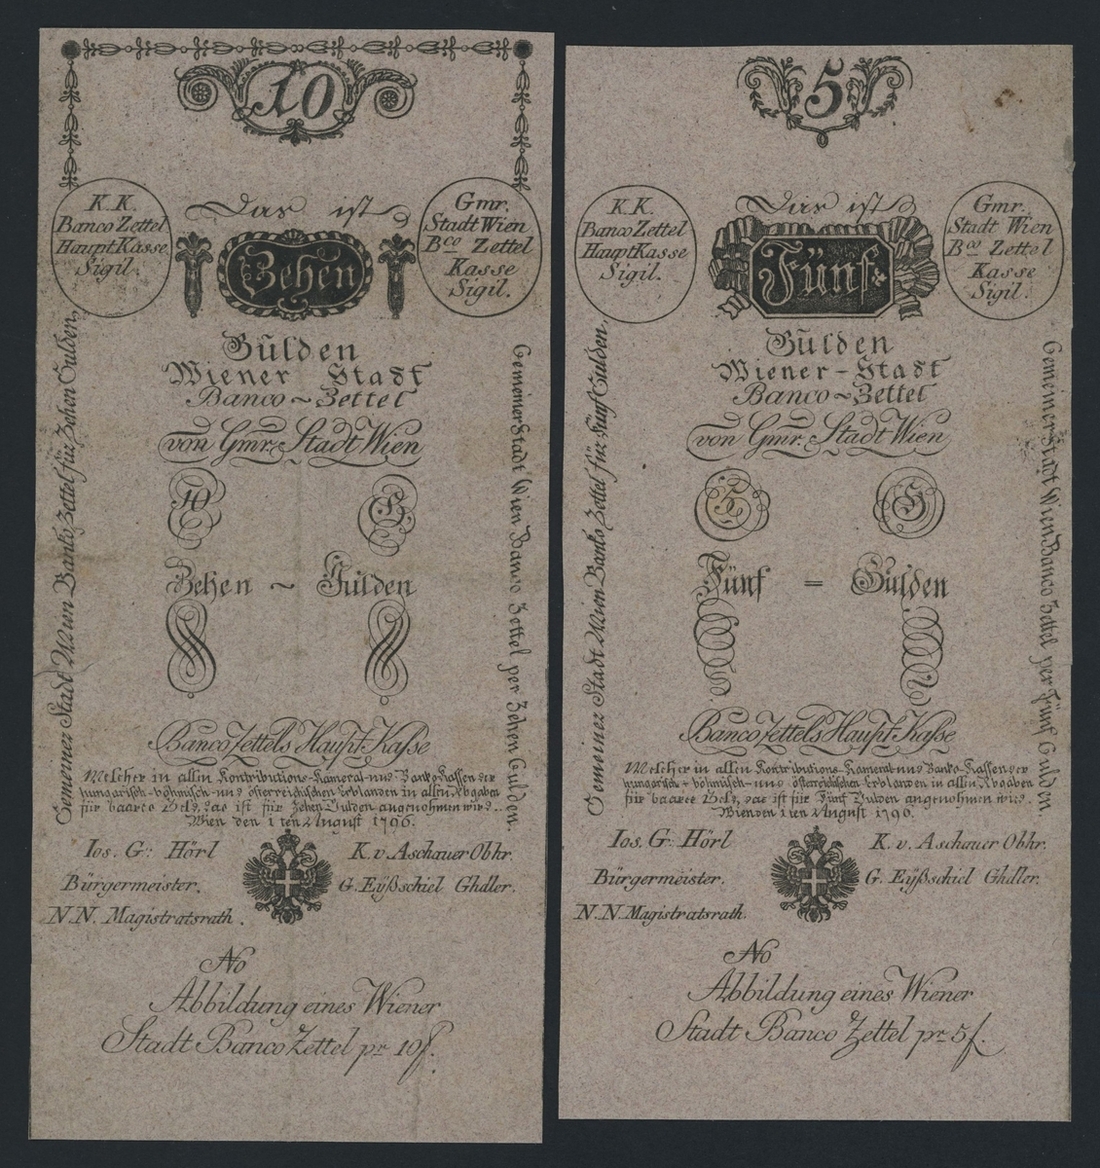 10
K. K.
Banco Zettel
Haupt Kasse
Sigil.
Das ist
Zehen
Gmr.
Stadt Wien
Bco Zettel
Kasse
Sigil.
Gulden
Wiener Stadt
Banco ~ Zettel
von Gmr. Stadt Wien
10
Zehen ~ Gulden
Banco Zettels Haupt Kasse
Welcher in allen Kontributions-Kameral-und Banko-Kassen der
hungarisch-böhmisch-und österreichischen Erblanden in allen Abgaben
für baares Geld, das ist für Zehen Gulden angenohmen wird.
Wien den 1ten August 1796.
Ios. G: Hörl
Bürgermeister.
N.N. Magistratsrath.
K. v. Aschauer Obhr.
G. Eÿßschiel Ghdler.
No
Abbildung eines Wiener
Stadt Banco Zettel pr 10f.
Gemeiner Stadt Wien Banko Zettel für Zehen Gulden,
Gemeiner Stadt Wien Banco Zettel per Zehen Gulden.
5
K. K.
Banco Zettel
Haupt Kasse
Sigil.
Das ist
Fünf
Gmr.
Stadt Wien
Bco Zettel
Kasse
Sigil.
Gulden
Wiener-Stadt
Banco ~ Zettel
von Gmr. Stadt Wien
5
Fünf = Gulden
Banco Zettels Haupt-Kasse
Welcher in allen Kontributions-Kameral-und Banko-Kassen der
hungarisch-böhmisch-und österreichischen Erblanden in allen Abgaben
für baares Geld, das ist für Fünf Gulden angenohmen wird.
Wien den 1ten August 1796.
Ios. G: Hörl
Bürgermeister.
N.N. Magistratsrath.
K. v. Aschauer Obhr.
G. Eÿßschiel Ghdler.
No
Abbildung eines Wiener
Stadt Banco Zettel pr 5f.
Gemeiner Stadt Wien Banko Zettel für Fünf Gulden.
Gemeiner Stadt Wien Banco Zettel per Fünf Gulden.